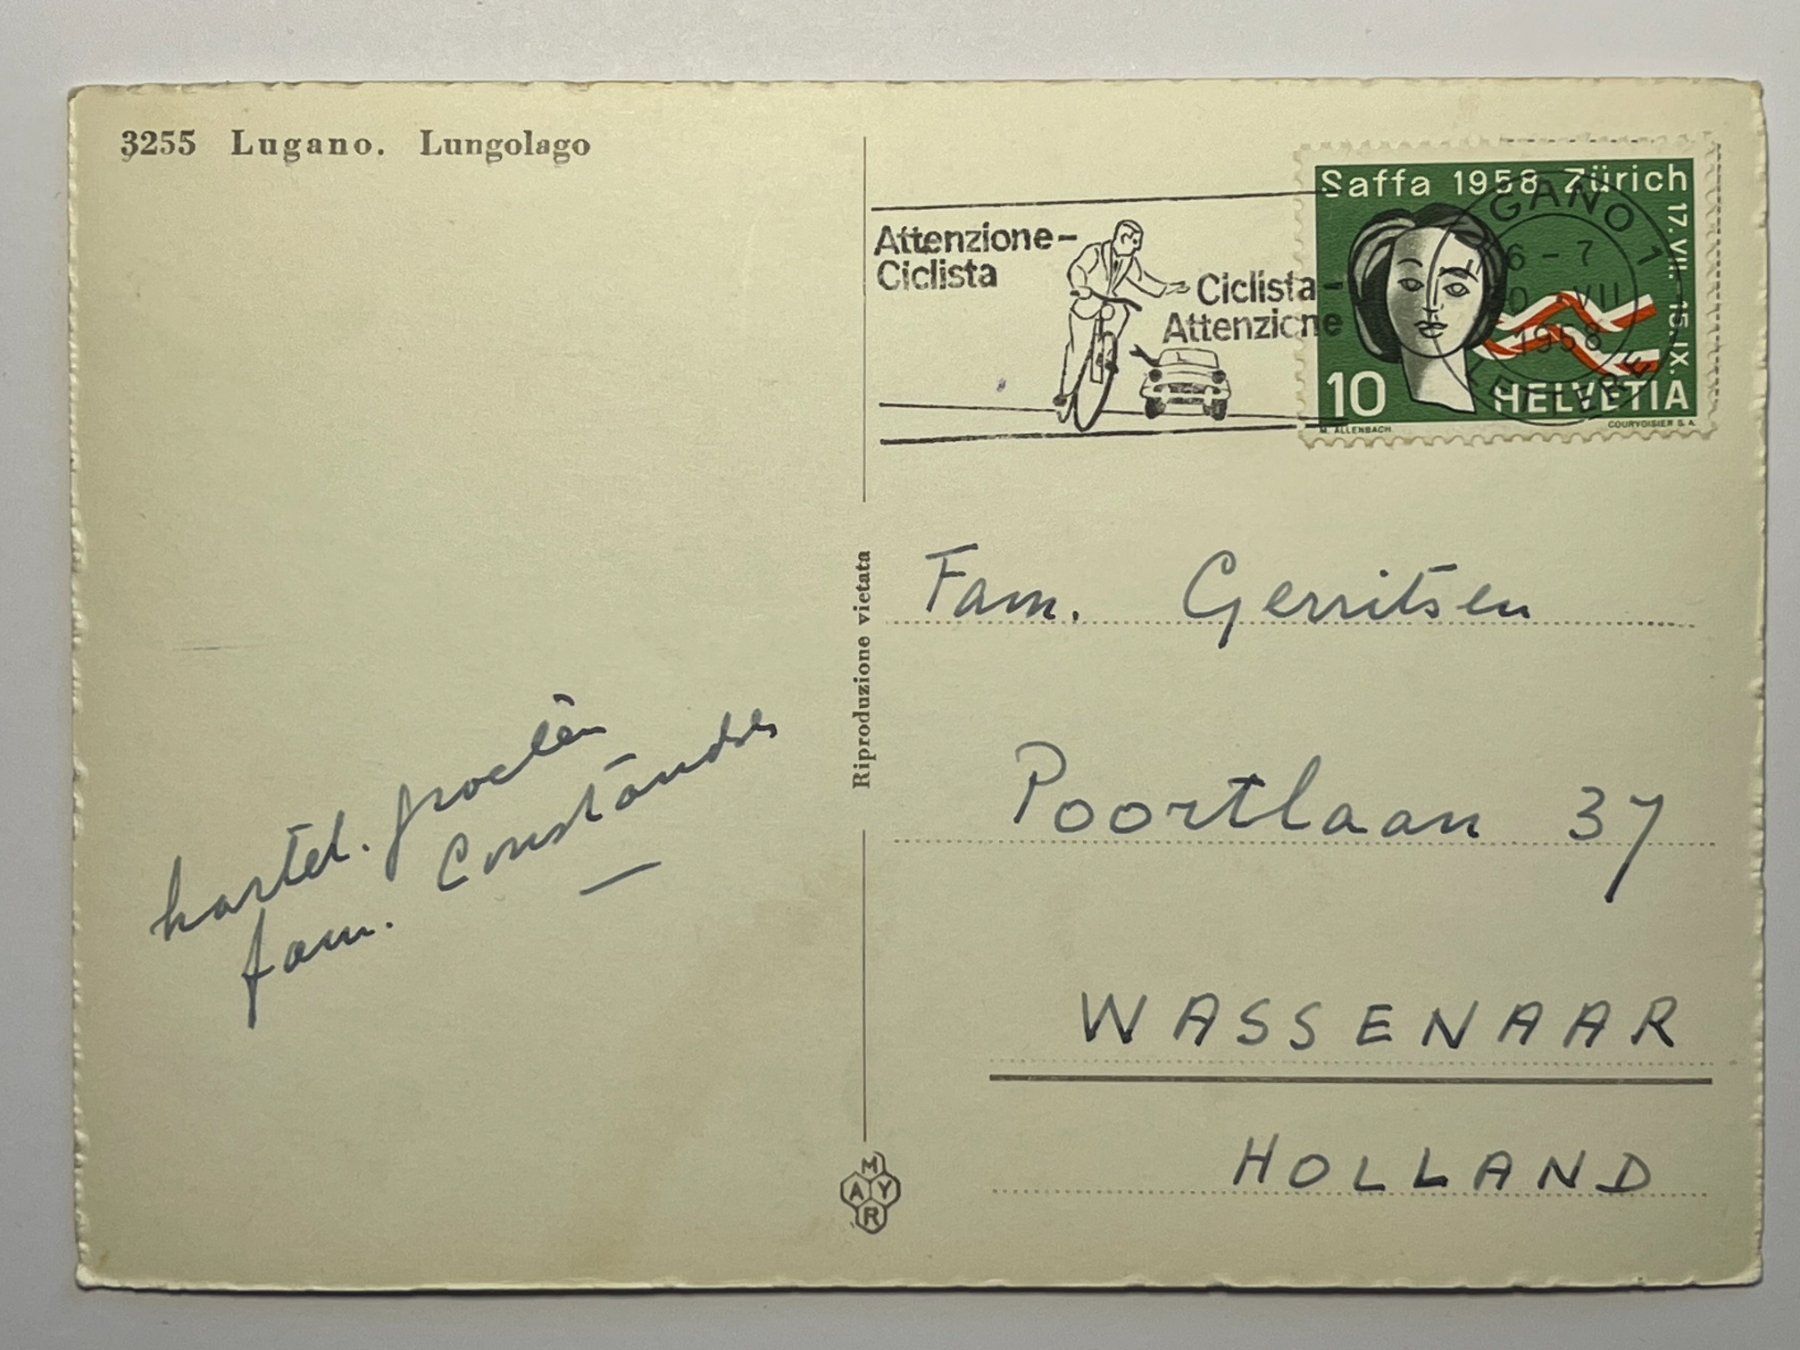 3255 Lugano. Lungolago
Attenzione-
Ciclista
Ciclista-
Attenzione
Saffa 1958 Zürich
17. VII. - 15. IX.
10
HELVETIA
M. ALLENBACH
COURVOISIER S.A.
GANO 1
6-7
VII
1958
LETTERE
Riproduzione vietata
Fam. Gerritsen
Poortlaan 37
WASSENAAR
HOLLAND
hartel. groeten
fam.
MAYR